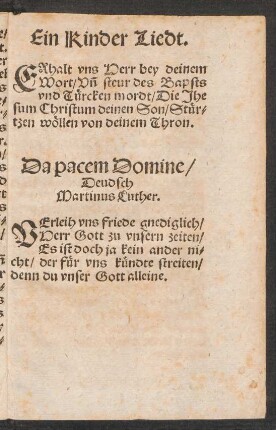 Ein Kinder Liedt.
ERhalt vns Herr bey deinem
Wort/Vñ steur des Bapsts
vnd Türcken mordt/Die Jhe
sum Christum deinen Son/Stür⸗
tzen wöllen von deinem Thron.
Da pacem Domine/
Deudsch
Martinus Luther.
VErleih vns friede gnediglich/
Herr Gott zu vnsern zeiten/
Es ist doch ja kein ander ni⸗
cht/ der für vns kündte streiten/
denn du vnser Gott alleine.